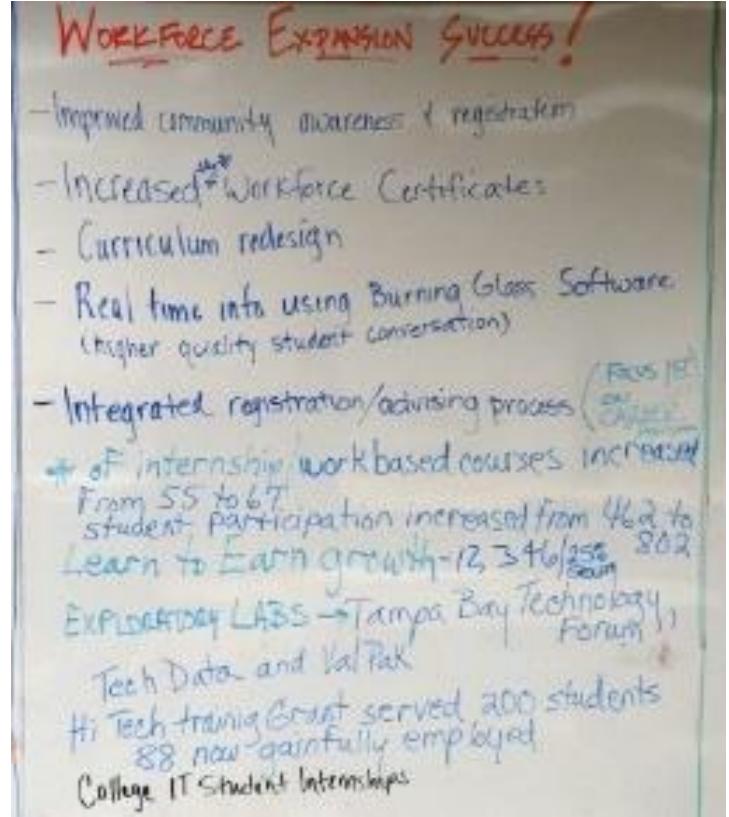 WORKFORCE EXPANSION SUCCESS!
- Improved community awareness & registration
- Increased # Workforce Certificates
- Curriculum redesign
- Real time info using Burning Glass Software
(higher quality student conversation)
- Integrated registration/advising process (FOCUS 1ST
ON
CAREER
# of internship/workbased courses increased
From 55 to 67
student participation increased from 462 to
802
Learn to Earn growth - 12,346/25%
EXPLORATORY LABS → Tampa Bay Technology
Forum,
Tech Data and ValPak
Hi Tech trainig Grant served 200 students
88 now gainfully employed
College IT Student Internships